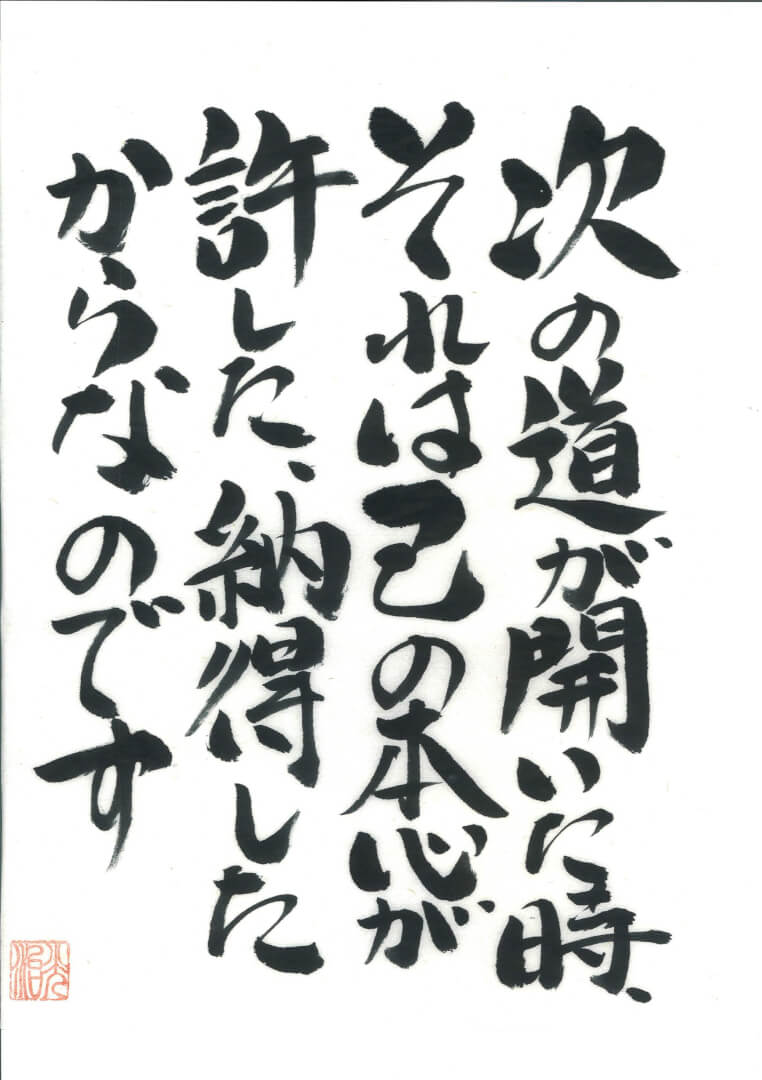 次の道が開いた時、
それは己の本心が
許した、納得した
からなのです